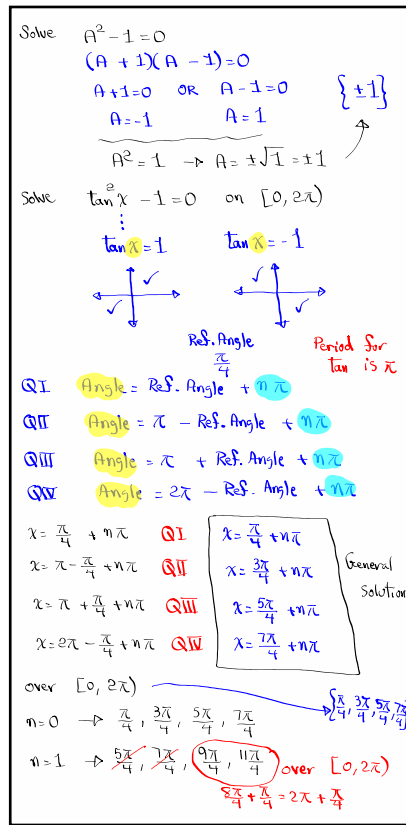 Solve A² - 1 = 0
(A + 1)(A - 1) = 0
A + 1 = 0 OR A - 1 = 0 {±1}
A = -1 A = 1
A² = 1 → A = ±√1 = ±1
Solve tan²x - 1 = 0 on [0, 2π)
tan x = 1 tan x = -1
Ref. Angle
π/4
Period for
tan is π
QI Angle = Ref. Angle + nπ
QII Angle = π - Ref. Angle + nπ
QIII Angle = π + Ref. Angle + nπ
QIV Angle = 2π - Ref. Angle + nπ
x = π/4 + nπ QI x = π/4 + nπ
x = π - π/4 + nπ QII x = 3π/4 + nπ
x = π + π/4 + nπ QIII x = 5π/4 + nπ
x = 2π - π/4 + nπ QIV x = 7π/4 + nπ
General
Solution
over [0, 2π) {π/4, 3π/4, 5π/4, 7π/4}
n = 0 → π/4, 3π/4, 5π/4, 7π/4
n = 1 → 5π/4, 7π/4, 9π/4, 11π/4 over [0, 2π)
8π/4 + π/4 = 2π + π/4